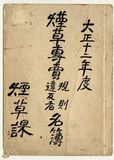 大正十二年度
煙草專賣規則違反者名簿
煙草課